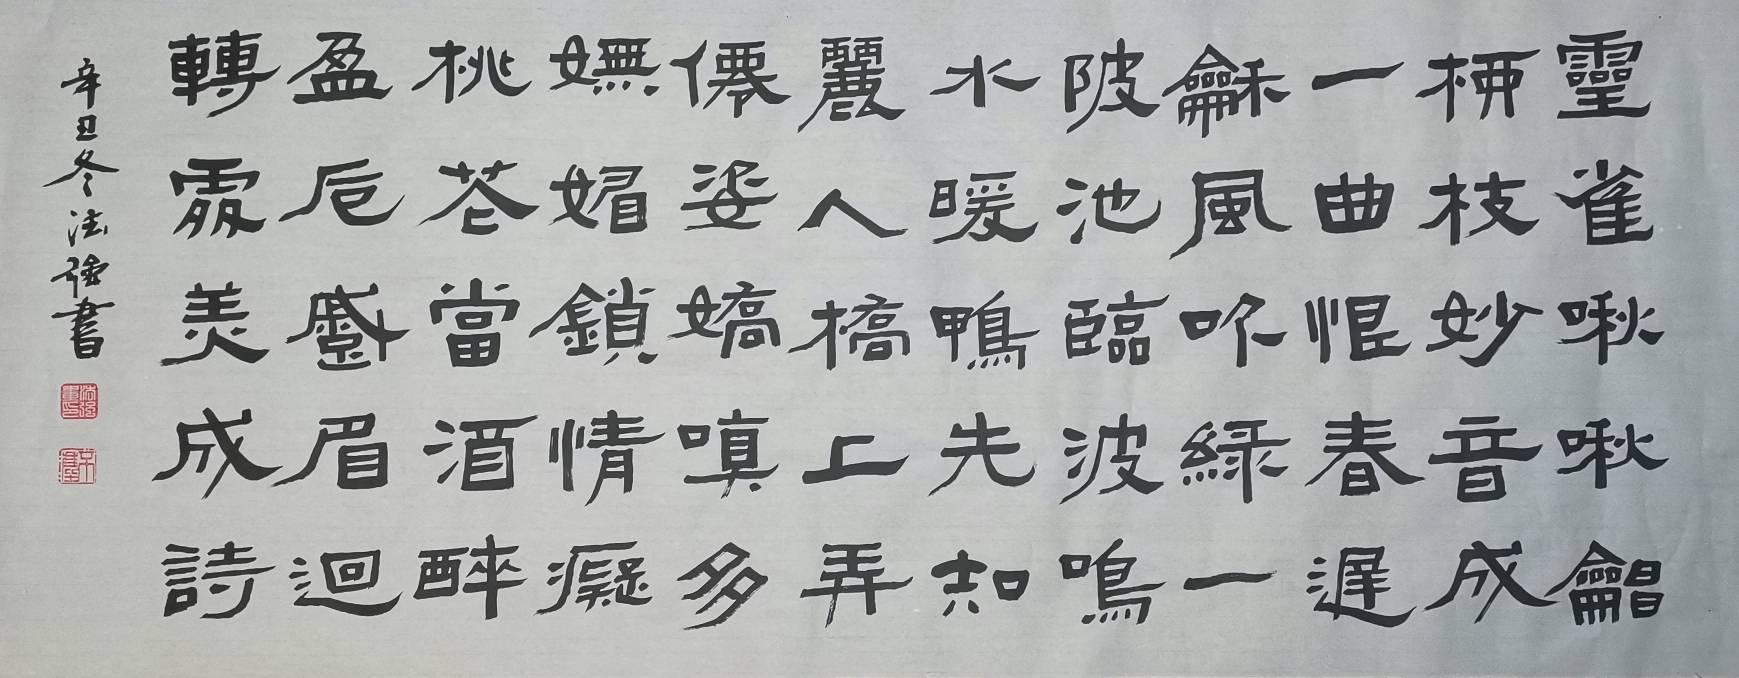 靈雀啾啾
栖枝妙音成
一曲恨春遲
龢風吹綠一
陂池臨波鳴
水暖鴨先知
麗人橋上弄
僊姿嬌嗔多
嫵媚鎖情癡
桃芲當酒醉
盈卮眉迴
轉羙成詩
辛丑冬法强書